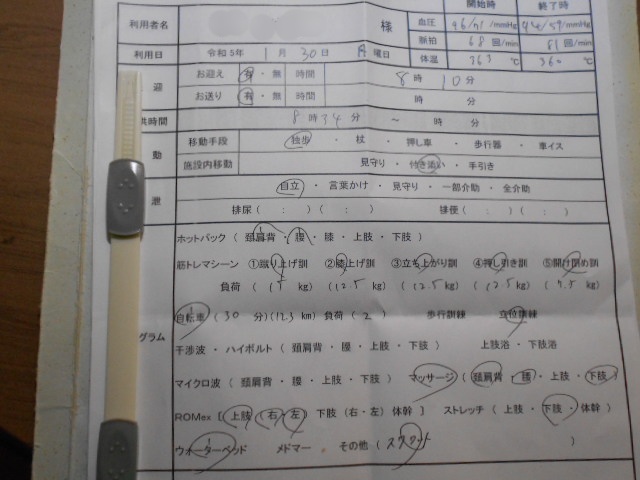 開始時 終了時
利用者名 様 血圧 /71 mmHg /59 mmHg
脈拍 68 回/min 81 回/min
利用日 令和5年 1月 30日 月曜日 体温 36.3 ℃ 36.0 ℃
迎 お迎え 有・無 時間 8時 10分
お送り 有・無 時間 時 分
供時間 8時 34分 ～ 時 分
動 移動手段 独歩 ・ 杖 ・ 押し車 ・ 歩行器 ・ 車イス
施設内移動 見守り ・ 付き添い ・ 手引き
泄 自立 ・ 言葉かけ ・ 見守り ・ 一部介助 ・ 全介助
排尿 ( : ) ( : ) 排便 ( : ) ( : )
グラム ホットパック ( 頚肩背 ・ 腰 ・ 膝 ・ 上肢 ・ 下肢 )
筋トレマシーン ①蹴り上げ訓 ②膝上げ訓 ③立ち上がり訓 ④押し引き訓 ⑤開け閉め訓
負荷 ( 15 kg) (12.5 kg) (12.5 kg) (12.5 kg) (7.5 kg)
自転車 (30 分) (12.3 km) 負荷 ( 2 ) 歩行訓練 立位訓練
干渉波 ・ ハイボルト ( 頚肩背 ・ 腰 ・ 上肢 ・ 下肢 ) 上肢浴 ・ 下肢浴
マイクロ波 ( 頚肩背 ・ 腰 ・ 上肢 ・ 下肢 ) マッサージ ( 頚肩背 ・ 腰 ・ 上肢 ・ 下肢 )
ROMex [ 上肢 (右・左) 下肢 (右・左) 体幹 ] ストレッチ ( 上肢 ・ 下肢 ・ 体幹 )
ウォーターベッド メドマー ・ その他 ( スクワット )